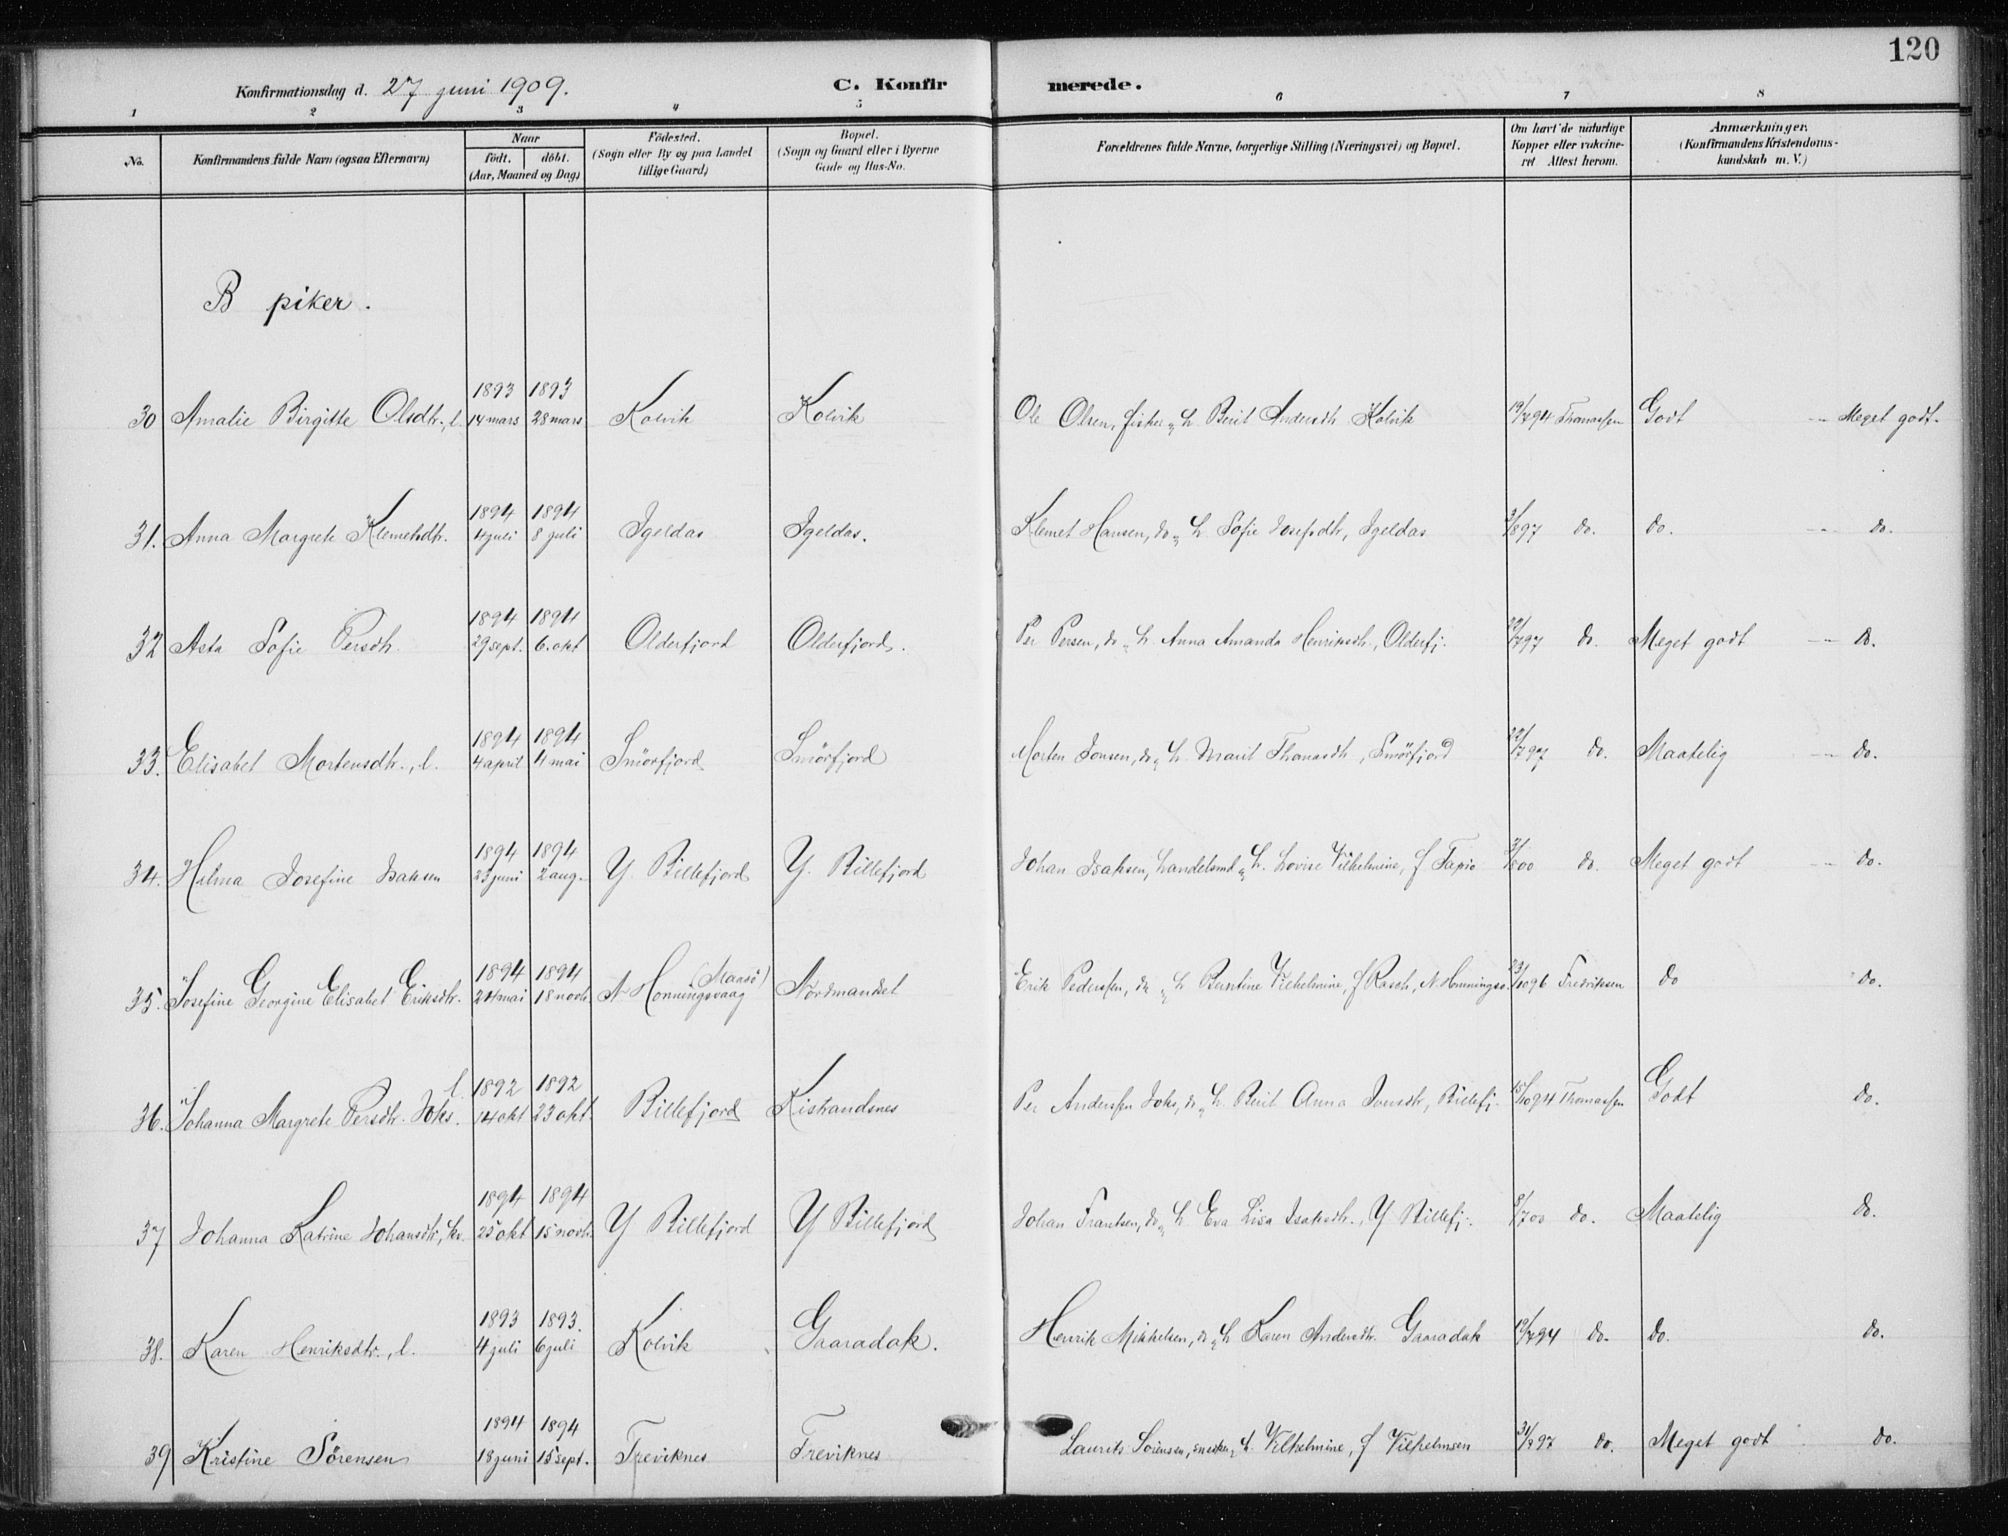 120
Konfirmationsdag d. 27 juni 1909. C. Konfir merede.
1 2 3 4 5 6 7 8
No. Konfirmandens fulde Navn (ogsaa Efternavn) Naar født. døbt. (Aar, Maaned og Dag) Fødested. (Sogn eller By og paa Landet tillige Gaard) Bopæl. (Sogn og Gaard eller i Byerne Gade og Hus-No. Forældrenes fulde Navne, borgerlige Stilling (Næringsvei) og Bopæl. Om havt de naturlige Kopper eller vakcineret Attest herom. Anmærkninger. (Konfirmandens Kristendomskundskab m. V.)
B piker.
1893 1893
30 Amalie Birgitte Olsdtr., l. 14 mars 28 mars Kolvik Kolvik Ole Olsen, fisker, „ h. Berit Andersdtr Kolvik 19/7 94 Thomassen Godt — Meget godt.
1894 1894
31. Anna Margrete Klemetsdtr. 4 juli 8 juli Igeldas Igeldas. Klemet Hansen, do „ h. Sofie Josefsdtr, Igeldas 3/8 97 do. do. — do.
1894 1894
32 Asta Sofie Persdtr. 29 sept. 6. okt Olderfjord Olderfjord. Per Persen, do „ h. Anna Amanda Henriksdtr., Olderfj. 22/7 97 do. Meget godt — do.
1894 1894
33. Elisabet Mortensdtr., l. 4 april 4 mai Smörfjord Smörfjord Morten Jonsen, do „ h. Marit Thomasdtr, Smörfjord 22/7 97 do. Maatelig — do.
1894 1894
34. Hilma Josefine Isaksen 23 juni 2 aug. Y. Billefjord Y. Billefjord Johan Isaksen, handelsmd „ h. Lovise Vilhelmine, f Tapio 2/8 00 do. Meget godt — do.
1894 1894 (Maasö)
35. Josefine Georgine Elisabet Eriksdtr. 24 mai 18 novb. N Honningsvaag Nordmanset Erik Pederssen, do „ h Berntine Vilhelmine, f Rasch, N. Honningsv. 23/10 96 Fredriksen do do.
l. 1892 1892
36. Johanna Margrete Persdtr. Joks. 14 okt 23 okt. Billefjord Kistrandsnes Per Anderssen Joks, do „ h. Berit Anna Iversdtr, Billefj. 15/10 94 Thomassen Godt do.
1894 1894
37 Johanna Katrine Johansdtr, kv. 25 okt 15 novb. Y Billefjord Y Billefjord Johan Frantsen, do „ h. Eva Lisa Isaksdtr., Y Billefj. 8/7 00 do. Maatelig do.
1893 1893.
38. Karen Henriksdtr., l. 4 juli 6 juli Kolvik Gaaradak. Henrik Mikkelsen, do „ h Karen Andersdtr. Gaaradak 19/7 94 do. do. do.
1894 1894
39 Kristine Sörensen 18 juni 15 sept. Treviknes Treviknes Laurits Sörensen, snekker, „ h. Vilhelmine, f Vilhelmsen 31/7 97 do. Meget godt do.